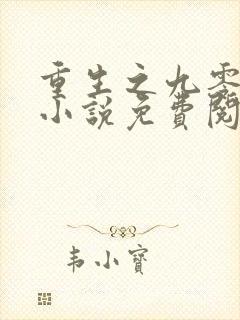 重生之九零
小说免費閱
韦小寶